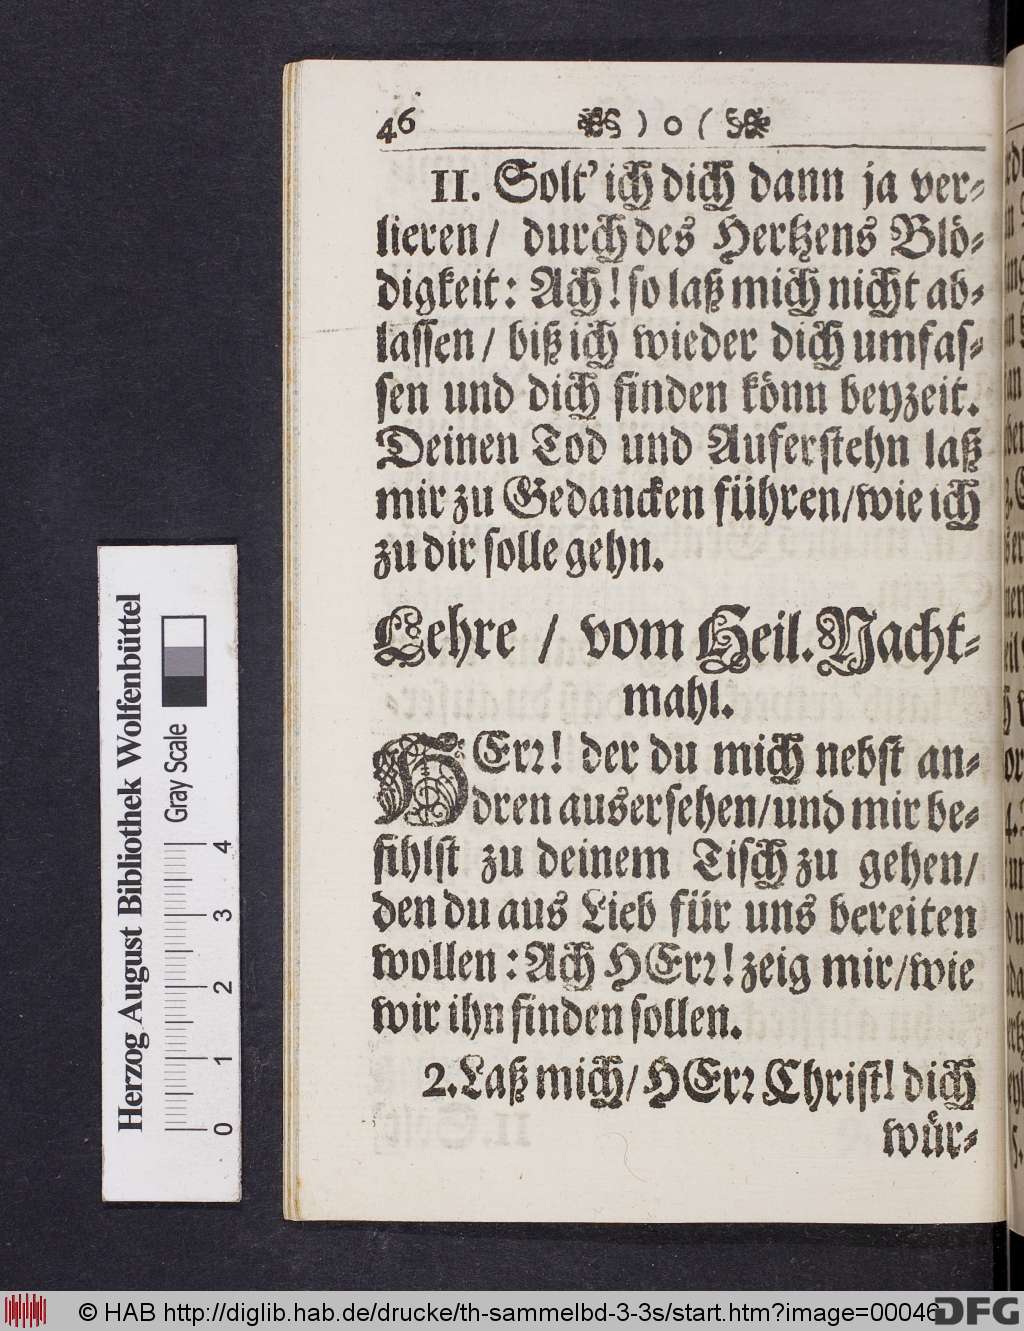 46 ) o (
II. Solt’ ich dich dann ja ver-
lieren / durch des Hertzens Blö-
digkeit: Ach! so laß mich nicht ab-
lassen / biß ich wieder dich umfas-
sen und dich finden könn beyzeit.
Deinen Tod und Auferstehn laß
mir zu Gedancken führen/wie ich
zu dir solle gehn.
Lehre / vom Heil. Nacht-
mahl.
HErr! der du mich nebst an-
dren ausersehen/und mir be-
fihlst zu deinem Tisch zu gehen/
den du aus Lieb für uns bereiten
wollen: Ach HErr! zeig mir/wie
wir ihn finden sollen.
2. Laß mich/ HErr Christ! dich
wür-
Herzog August Bibliothek Wolfenbüttel
Gray Scale
0 1 2 3 4
© HAB http://diglib.hab.de/drucke/th-sammelbd-3-3s/start.htm?image=00046
DFG